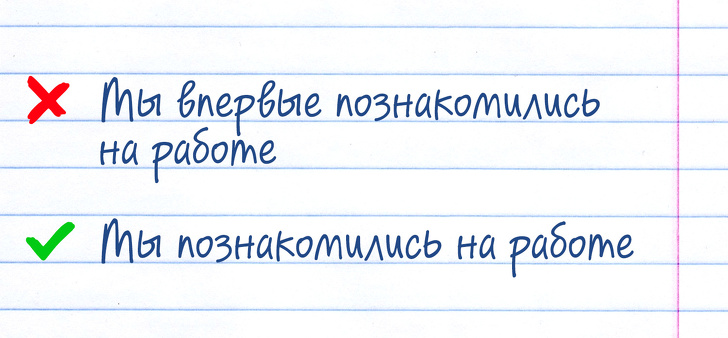 Мы впервые познакомились
на работе
Мы познакомились на работе